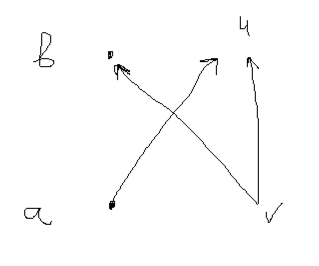 b u
a v